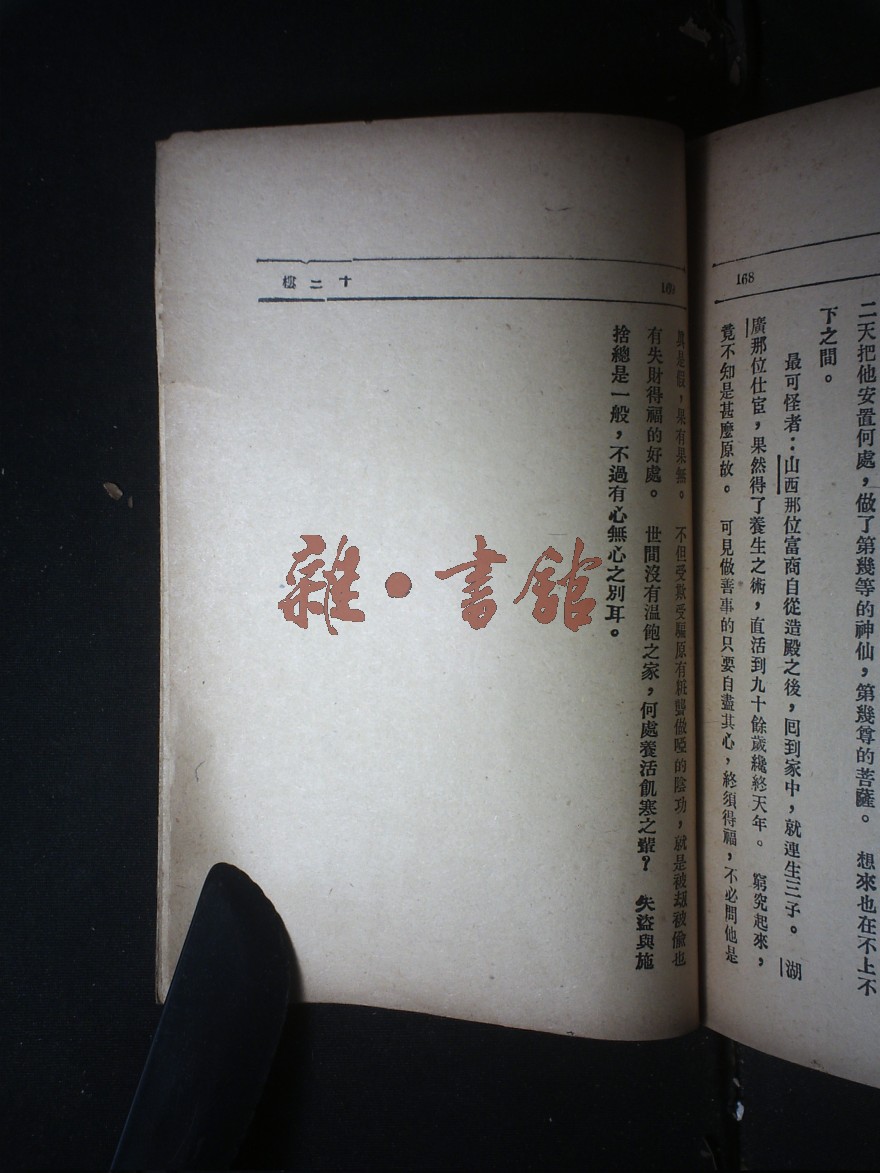 168
二天把他安置何處，做了第幾等的神仙，第幾尊的菩薩。　想來也在不上不
下之間。
最可怪者：山西那位富商自從造殿之後，囘到家中，就連生三子。　湖
廣那位仕宦，果然得了養生之術，直活到九十餘歲纔終天年。　窮究起來，
竟不知是甚麼原故。　可見做善事的只要自盡其心，終須得福，不必問他是
十二樓
169
眞是假，果有果無。　不但受欺受騙原有粧聾做啞的陰功，就是被刼被偸也
有失財得福的好處。　世間沒有温飽之家，何處養活飢寒之輩？　失盜與施
捨總是一般，不過有心無心之別耳。
雜·書館